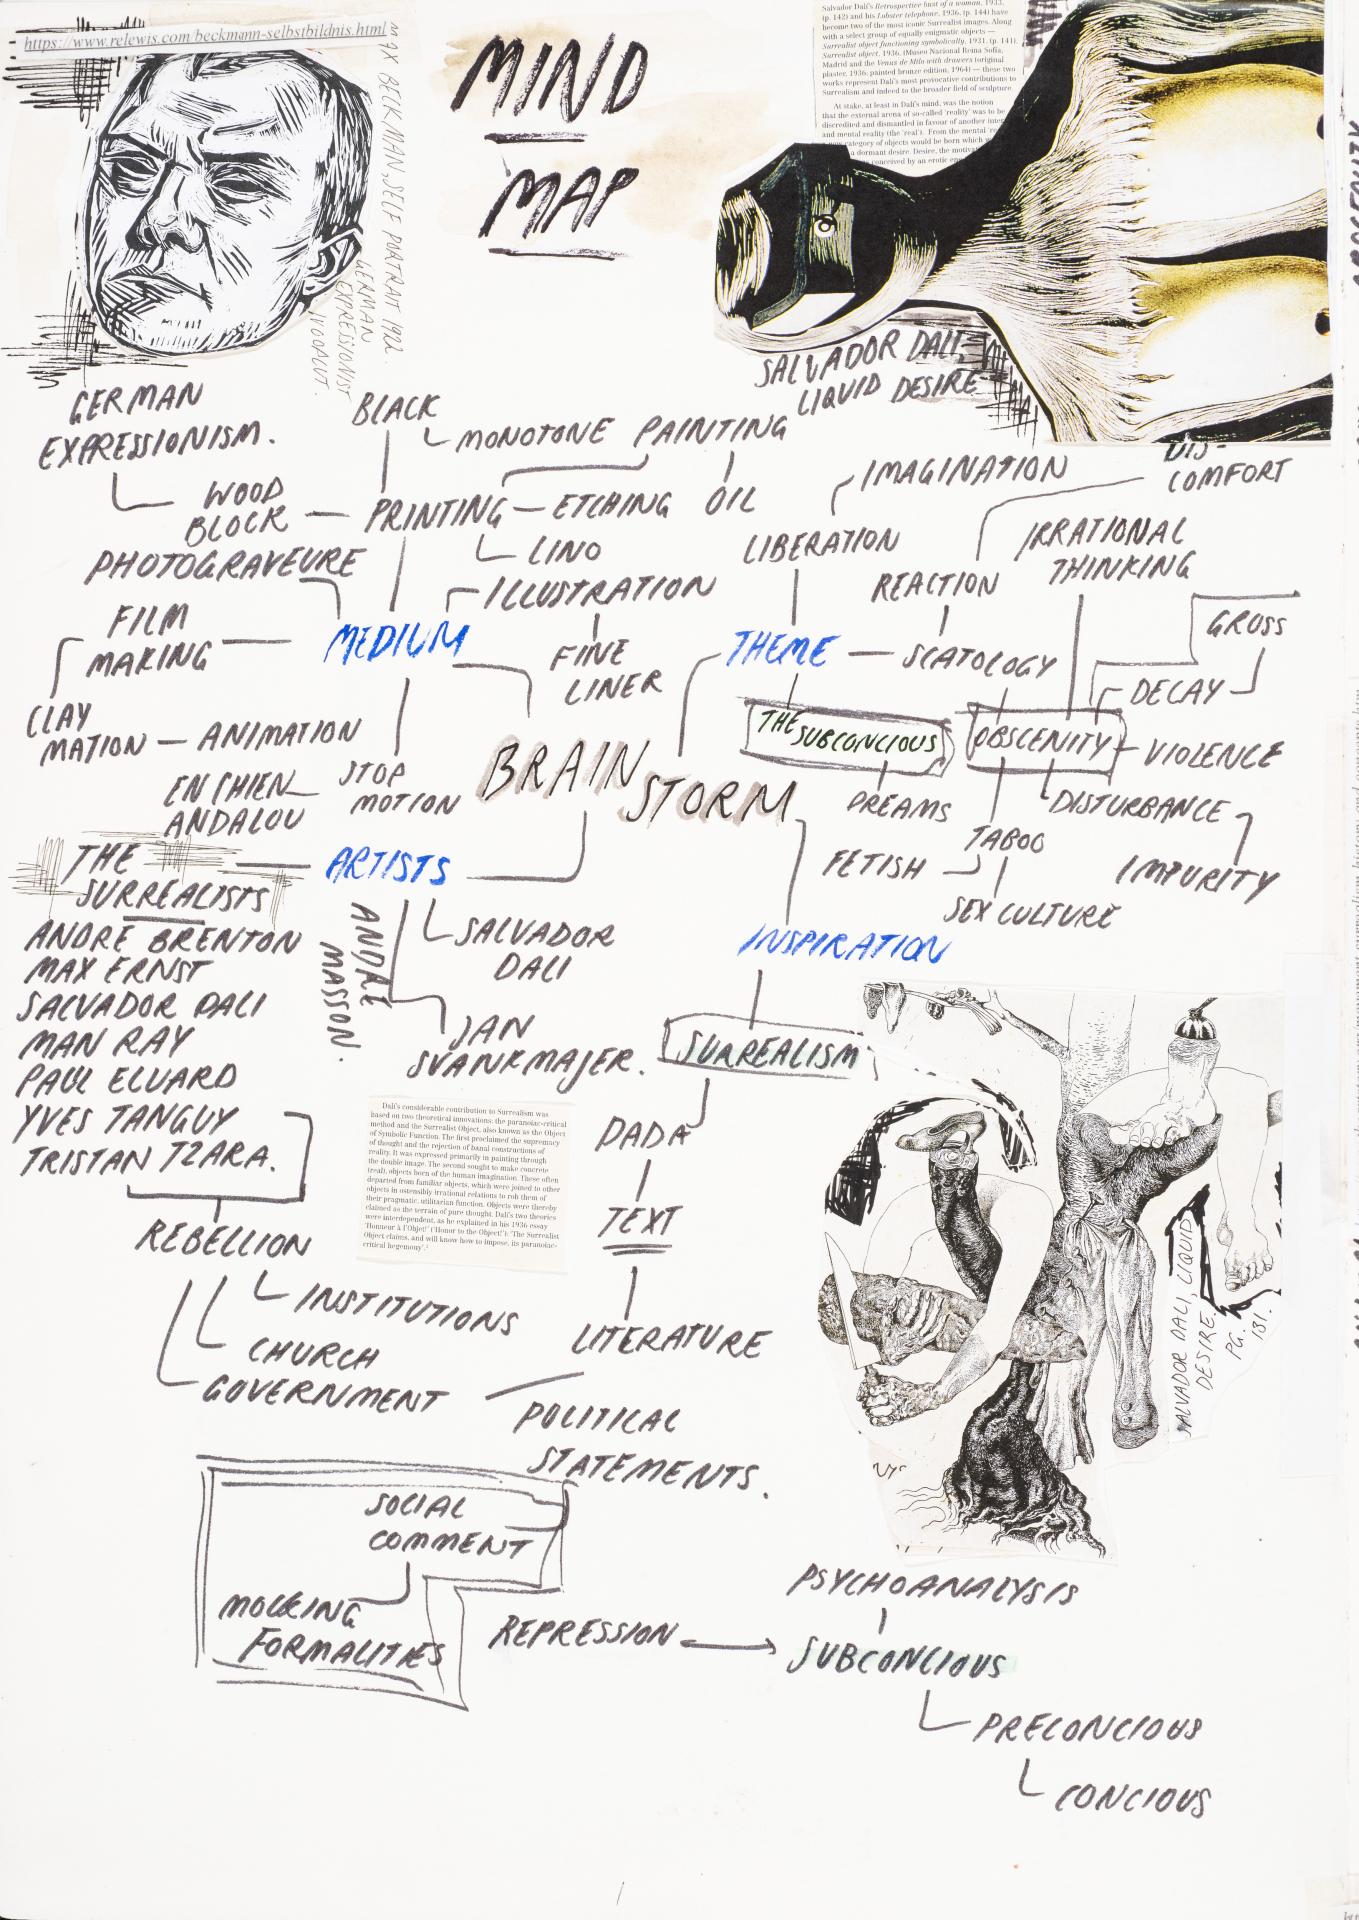 https://www.relewis.com/beckmann-selbstbildnis.html
MAX BECKMAN, SELF PORTRAIT 1922.
GERMAN
EXPRESSIONIST
WOODCUT.
MIND
MAP
Salvador Dalí's Retrospective bust of a woman, 1933,
(p. 142) and his Lobster telephone, 1936, (p. 144) have
become two of the most iconic Surrealist images. Along
with a select group of equally enigmatic objects —
Surrealist object functioning symbolically, 1931, (p. 141),
Surrealist object, 1936, (Museo Nacional Reina Sofía,
Madrid and the Venus de Milo with drawers (original
plaster, 1936; painted bronze edition, 1964) — these two
works represent Dalí's most provocative contributions to
Surrealism and indeed to the broader field of sculpture.
At stake, at least in Dalí's mind, was the notion
that the external arena of so-called 'reality' was to be
discredited and dismantled in favour of another
and mental reality (the 'real'). From the mental
category of objects would be born which
a dormant desire. Desire, the
conceived by an erotic
SALVADOR DALI,
LIQUID DESIRE
GERMAN
EXPRESSIONISM.
BLACK
MONOTONE
PAINTING
IMAGINATION
DIS-
COMFORT
WOOD
BLOCK
PRINTING
ETCHING
OIL
LIBERATION
IRRATIONAL
THINKING
PHOTOGRAVEURE
LINO
ILLUSTRATION
REACTION
FILM
MAKING
MEDIUM
FINE
LINER
THEME
SCATOLOGY
GROSS
DECAY
CLAY
MATION
ANIMATION
STOP
MOTION
BRAIN
STORM
THE
SUBCONCIOUS
OBSCENITY
VIOLENCE
EN CHIEN
ANDALOU
DREAMS
DISTURBANCE
TABOO
FETISH
IMPURITY
SEX CULTURE
THE
SURREALISTS
ARTISTS
ANDRE BRENTON
MAX ERNST
SALVADOR DALI
MAN RAY
PAUL ELUARD
YVES TANGUY
TRISTAN TZARA.
ANDRE
MASSON.
SALVADOR
DALI
JAN
SVANKMAJER.
INSPIRATION
SURREALISM
DADA
TEXT
LITERATURE
Dalí's considerable contribution to Surrealism was
based on two theoretical innovations: the paranoiac-critical
method and the Surrealist Object, also known as the Object
of Symbolic Function. The first proclaimed the supremacy
of thought and the rejection of banal constructions of
reality. It was expressed primarily in painting through
the double image. The second sought to make concrete
(real), objects born of the human imagination. These often
departed from familiar objects, which were joined to other
objects in ostensibly irrational relations to rob them of
their pragmatic, utilitarian function. Objects were thereby
claimed as the terrain of pure thought. Dalí's two theories
were interdependent, as he explained in his 1936 essay
'Honneur à l'Objet!' ('Honor to the Object!'): 'The Surrealist
Object claims, and will know how to impose, its paranoiac-
critical hegemony'.²
REBELLION
INSTITUTIONS
CHURCH
GOVERNMENT
POLITICAL
STATEMENTS.
SALVADOR DALI, LIQUID
DESIRE.
PG. 131.
SOCIAL
COMMENT
MOCKING
FORMALITIES
REPRESSION
PSYCHOANALYSIS
SUBCONCIOUS
PRECONCIOUS
CONCIOUS